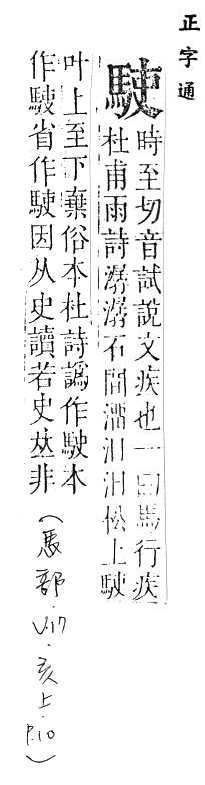 正字通
駛
時至切音試說文疾也一曰馬行疾
杜甫雨詩潺潺石間溜汨汨松上駛
叶上至下棄俗本杜詩譌作駛本
作駛省作駛因从史讀若史𠀤非
(馬部.V.17.亥上.P.10)